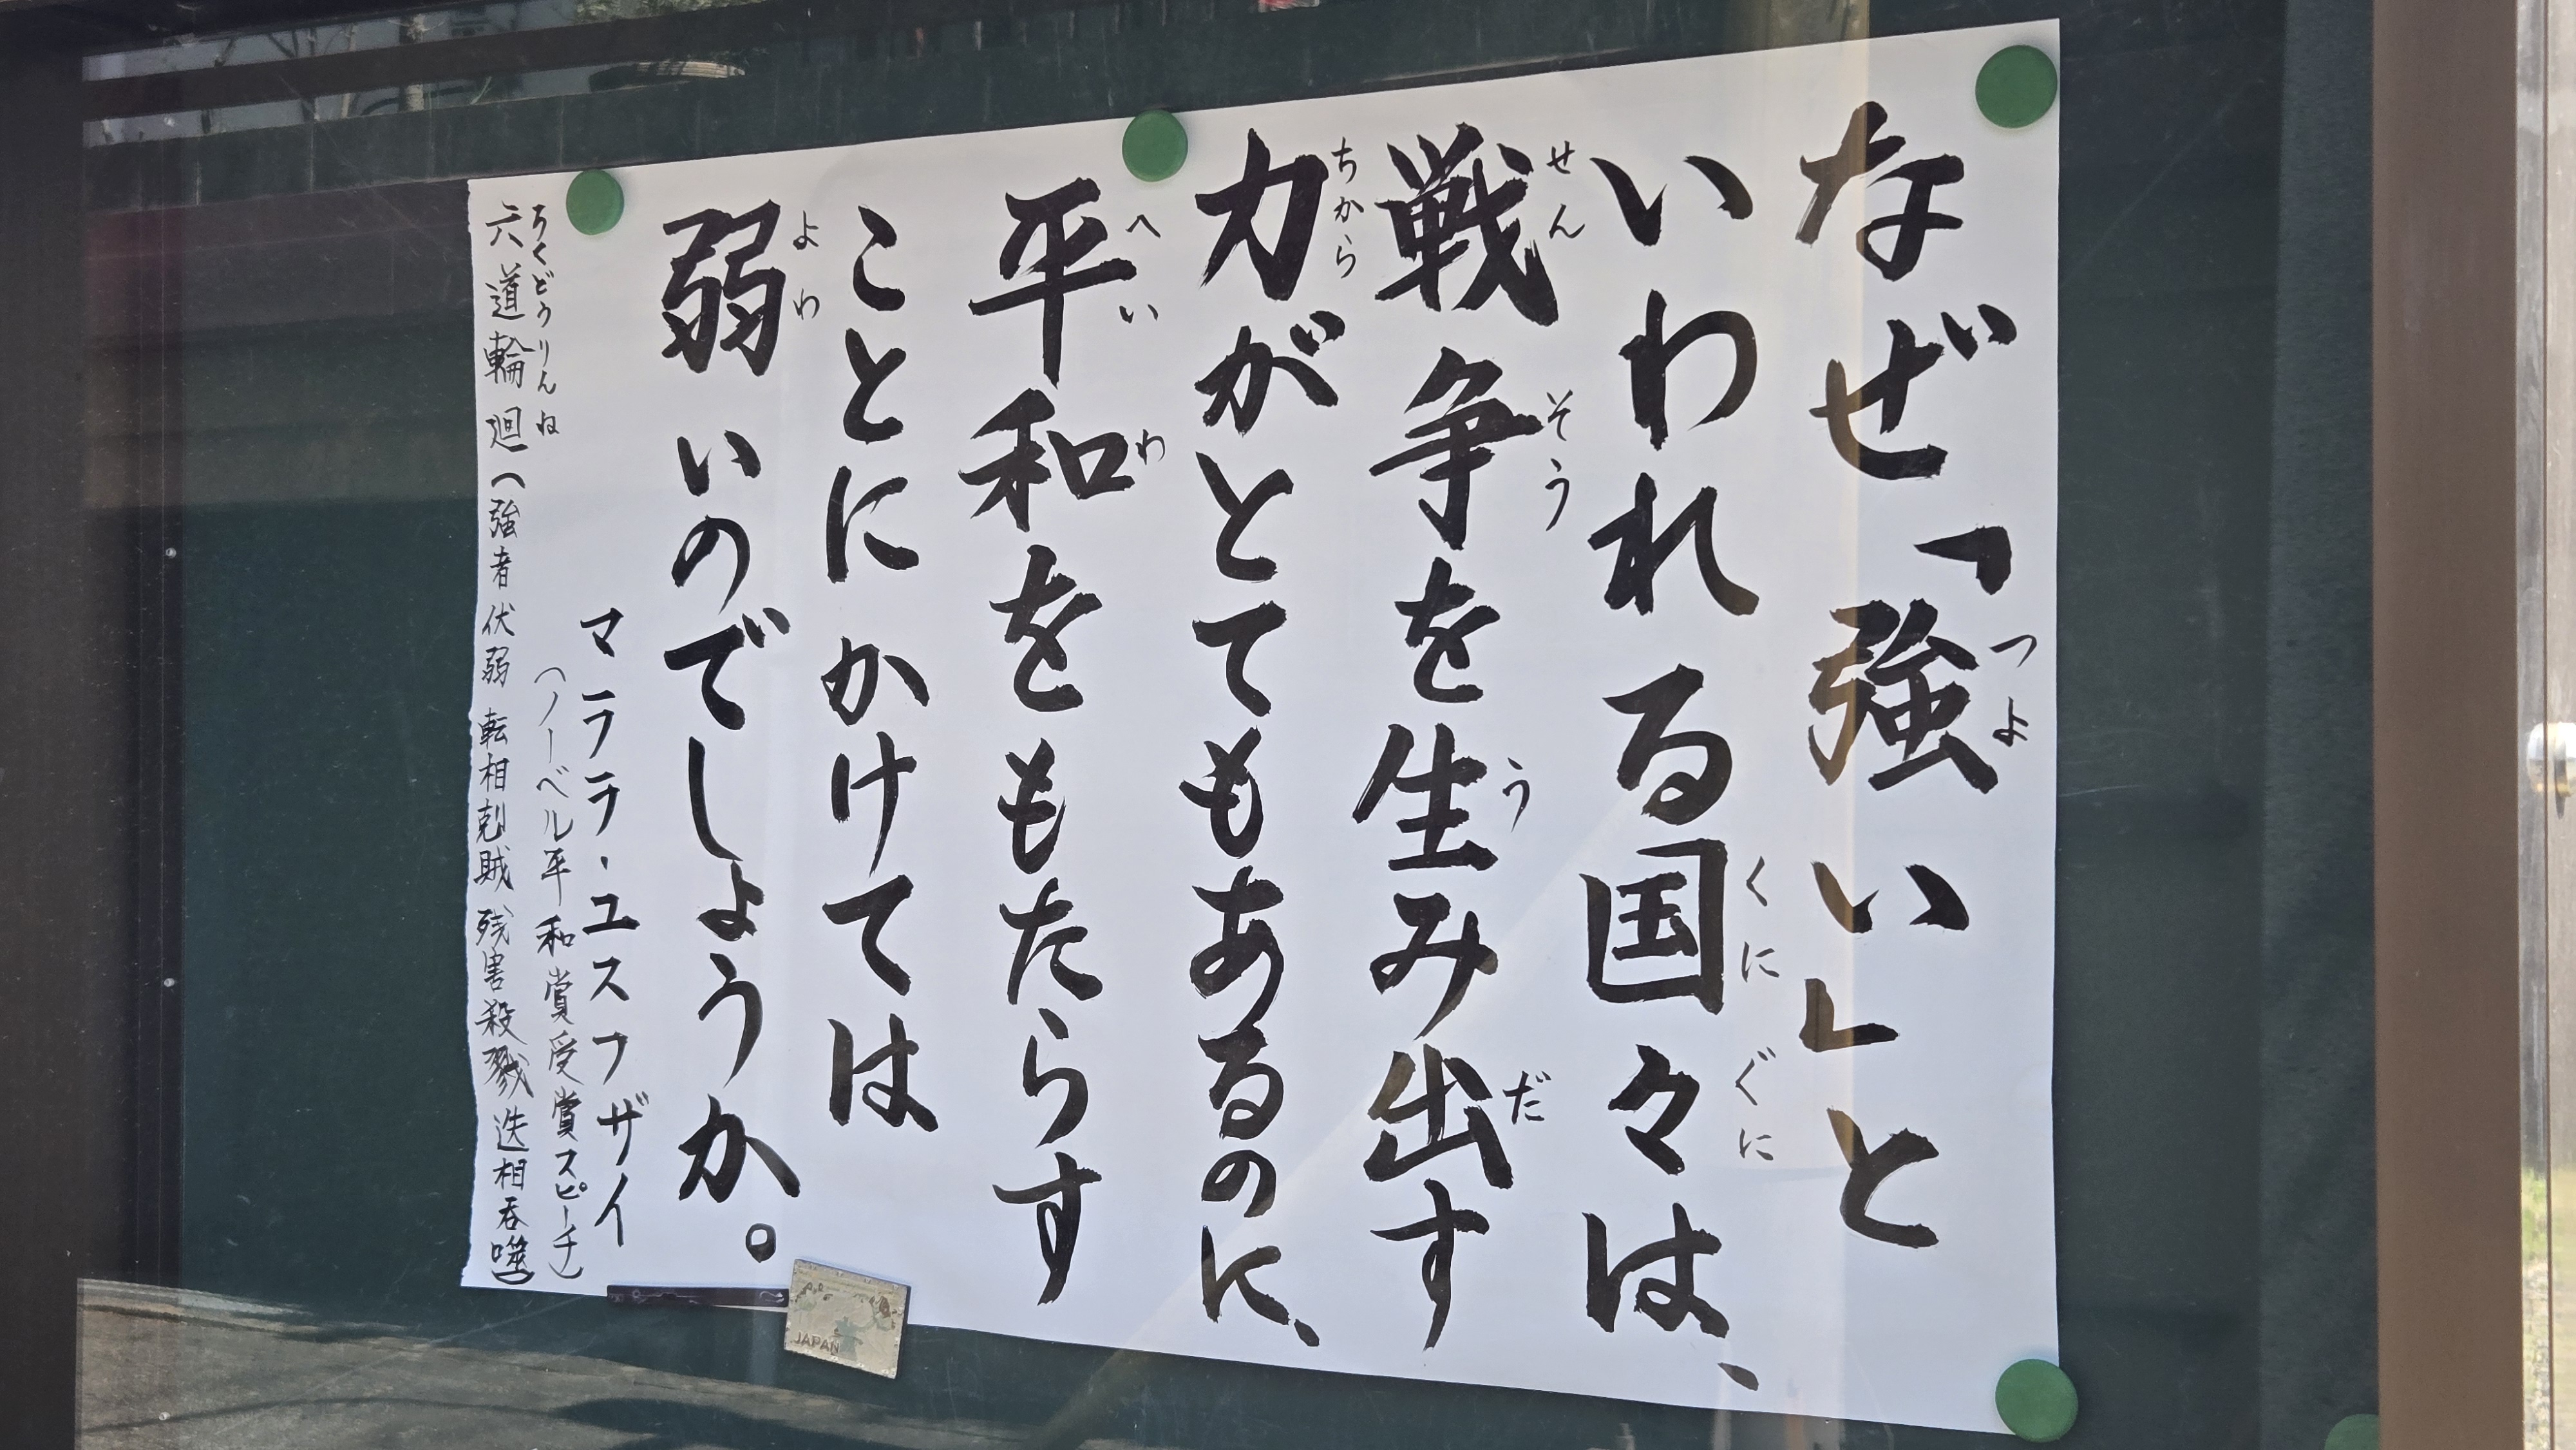 なぜ「強い」と
いわれる国々は、
戦争を生み出す
力がとてもあるのに、
平和をもたらす
ことにかけては
弱いのでしょうか。
マララ・ユスフザイ
(ノーベル平和賞受賞スピーチ)
六道輪廻(強者伏弱 転相剋賊 残害殺戮 迭相呑噬)
つよ
くにぐに
せんそう
う
だ
ちから
へいわ
よわ
ろくどうりんね
JAPAN